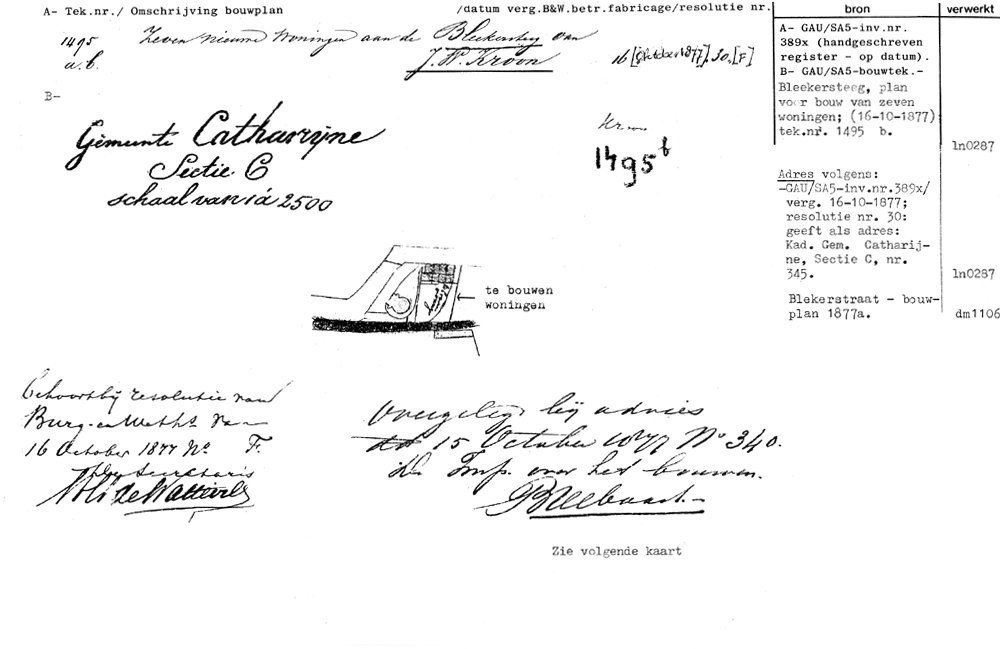 A- Tek.nr./ Omschrijving bouwplan /datum verg.B&W.betr.fabricage/resolutie nr. bron verwerkt
1495 a.b. Zeven nieuwe Woningen aan de Bleekersteeg van
J.W. Kroon 16 [October 1877]. 30. [F]
A- GAU/SA5-inv.nr.
389x (handgeschreven
register - op datum).
B- GAU/SA5-bouwtek.-
Bleekersteeg, plan
voor bouw van zeven
woningen; (16-10-1877)
tek.nr. 1495 b.
ln0287
Adres volgens:
-GAU/SA5-inv.nr.389x/
verg. 16-10-1877;
resolutie nr. 30:
geeft als adres:
Kad. Gem. Catharij-
ne, Sectie C, nr.
345.
ln0287
Blekerstraat - bouw-
plan 1877a.
dm1106
B-
Gemeente Catharijne
Sectie C
schaal van 1 á 2500
1495 b
te bouwen
woningen
Behoort bij resolutie van
Burg. en Weths van
16 October 1877 No F.
Secretaris
Overgelegd bij advies
15 October 1877 No 340.
De Insp. over het bouwen.
Zie volgende kaart